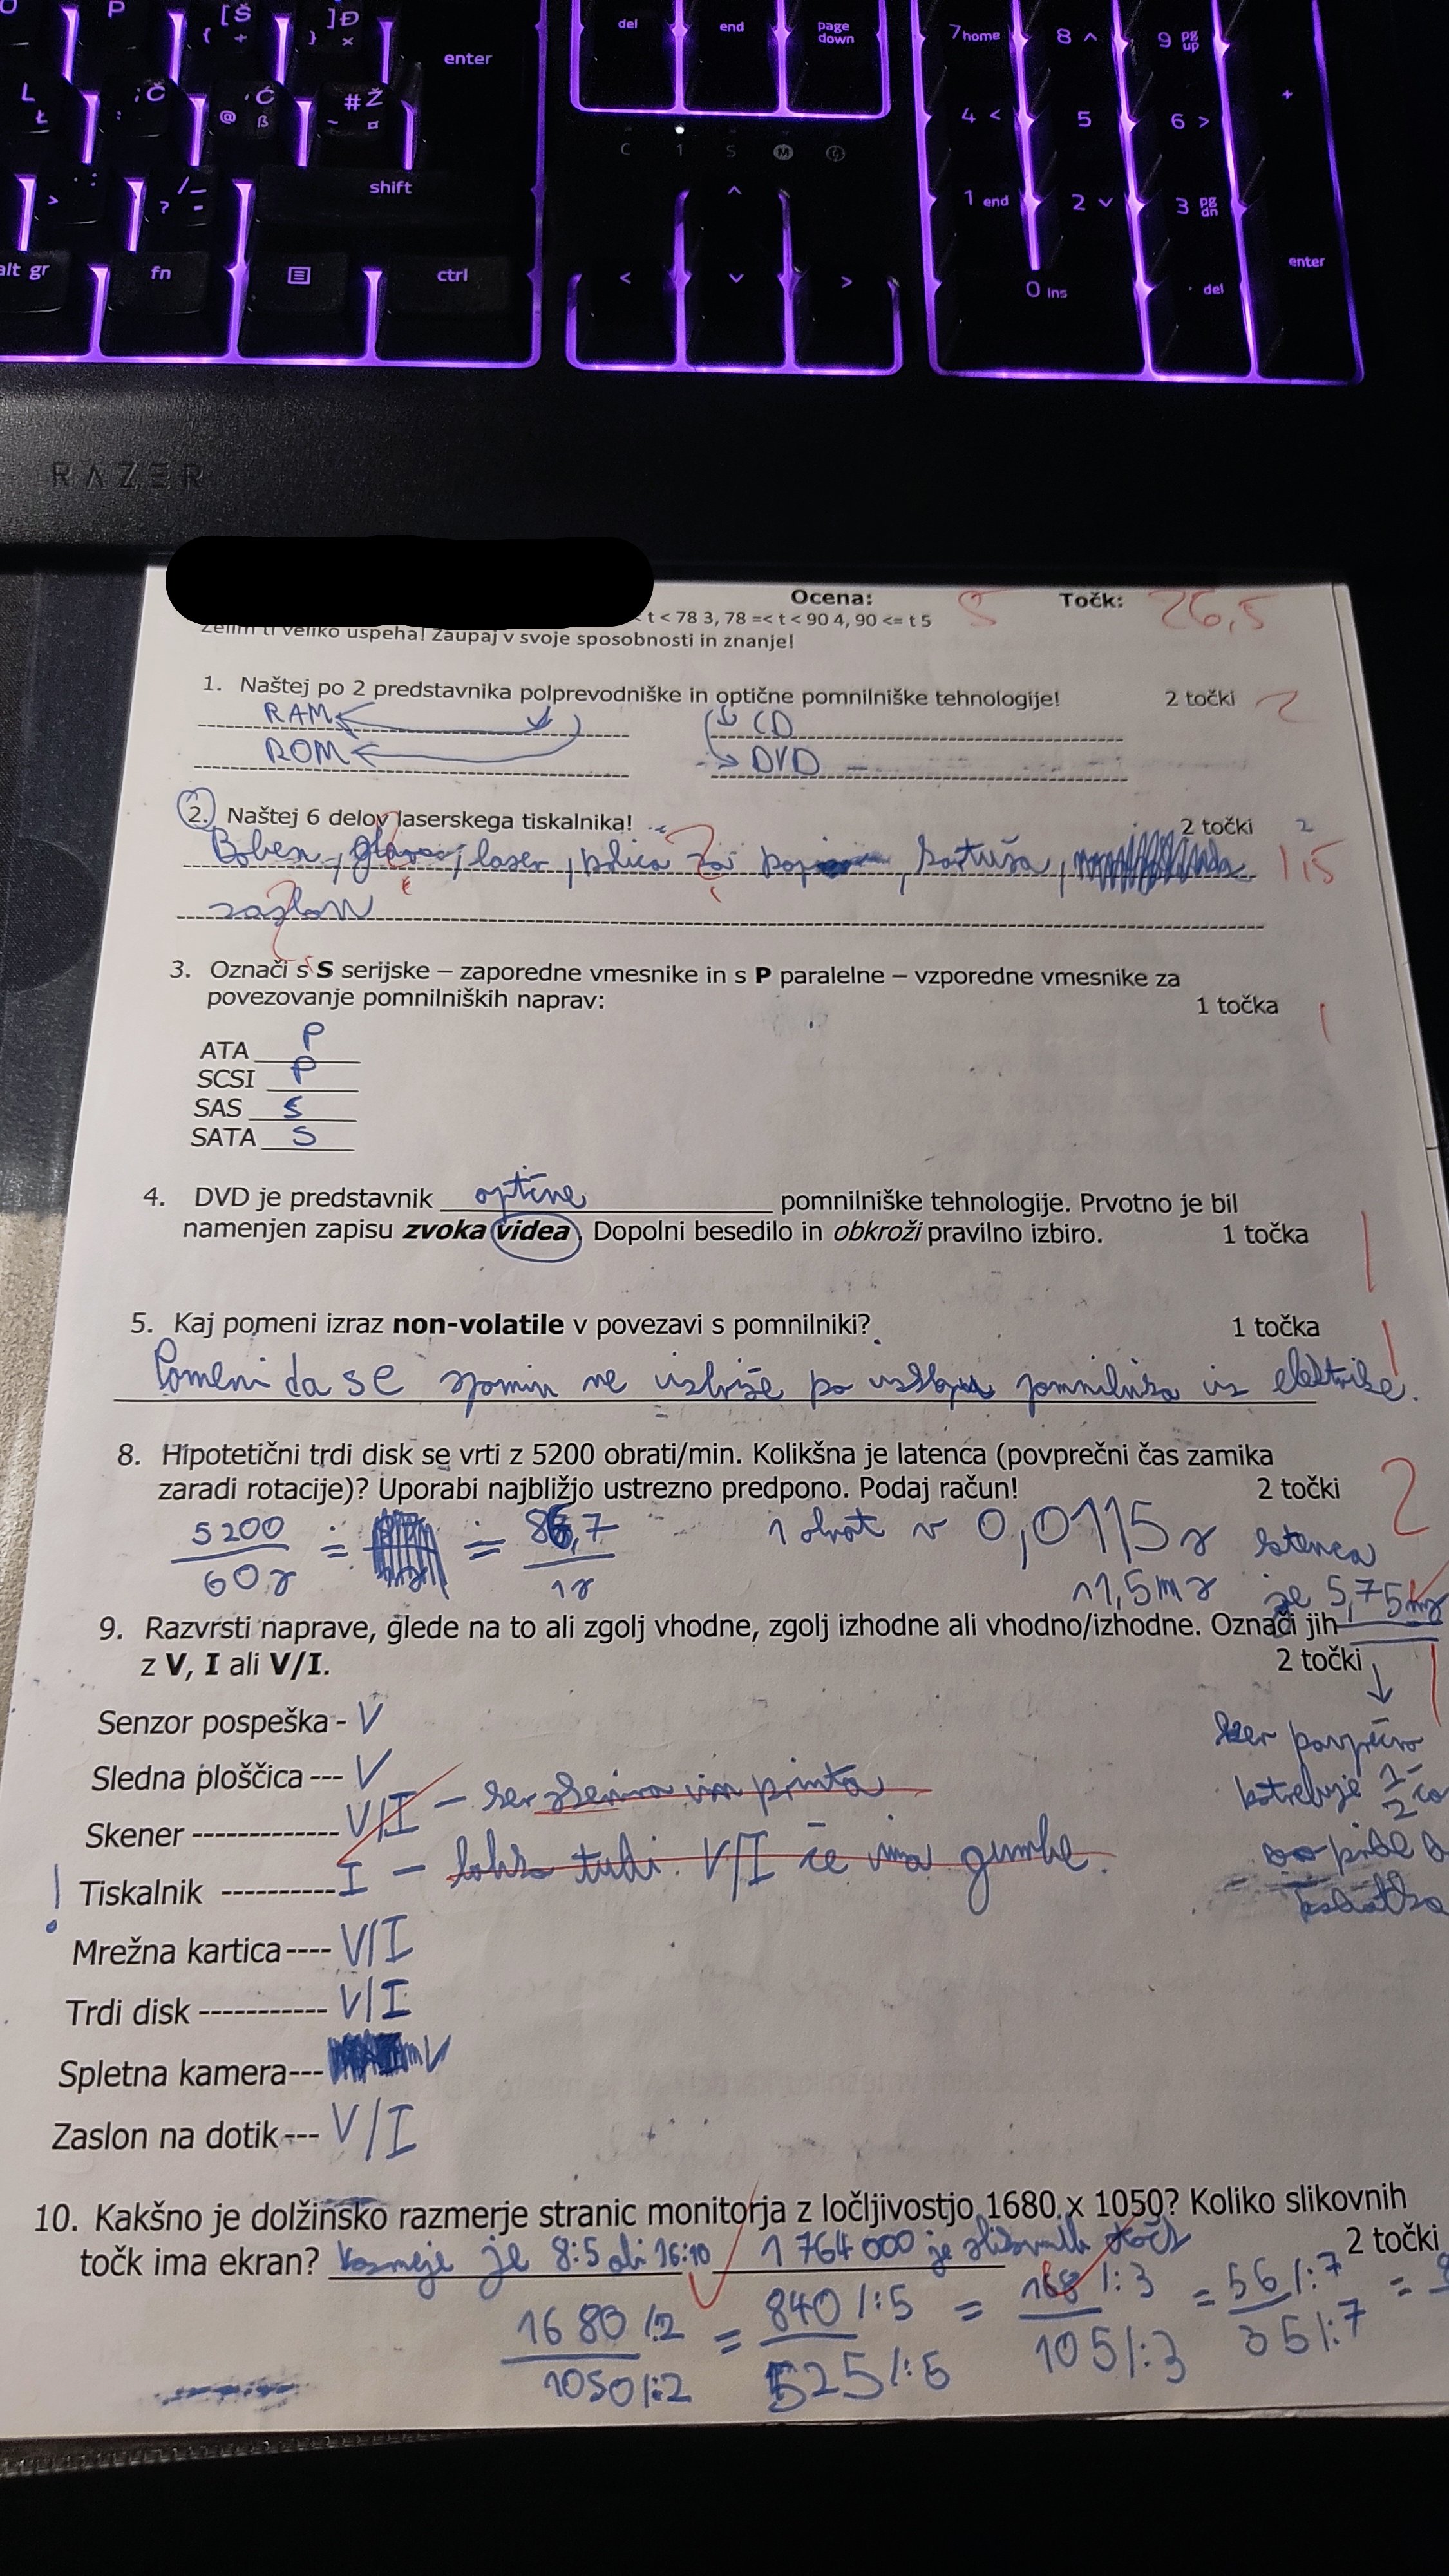 P [ Š ] Đ enter del end page down 7 home 8 9 pg up
{ ÷ } ×
L Ł ; Č : ' Ć @ ß # Ž ~ ¤ 4 < 5 6 > +
C 1 S M G
> . : / _ ? - shift 1 end 2 3 pg dn
alt gr fn ctrl < > 0 ins . del enter
RAZER
Ocena: 5 Točk: 26,5
t < 78 3, 78 =< t < 90 4, 90 <= t 5
Želim ti veliko uspeha! Zaupaj v svoje sposobnosti in znanje!
1. Naštej po 2 predstavnika polprevodniške in optične pomnilniške tehnologije! 2 točki 2
RAM CD
ROM DVD
2. Naštej 6 delov laserskega tiskalnika! 2 točki 2
Boben, laser, polica za kartuša, 1,5
zaslon
3. Označi s S serijske – zaporedne vmesnike in s P paralelne – vzporedne vmesnike za
povezovanje pomnilniških naprav: 1 točka 1
ATA P
SCSI P
SAS S
SATA S
4. DVD je predstavnik optične pomnilniške tehnologije. Prvotno je bil
namenjen zapisu zvoka videa. Dopolni besedilo in obkroži pravilno izbiro. 1 točka 1
5. Kaj pomeni izraz non-volatile v povezavi s pomnilniki? 1 točka 1
Pomeni da se spomin ne izbriše po izklopu pomnilnika iz elektrike.
8. Hipotetični trdi disk se vrti z 5200 obrati/min. Kolikšna je latenca (povprečni čas zamika
zaradi rotacije)? Uporabi najbližjo ustrezno predpono. Podaj račun! 2 točki 2
5200 / 60 s = = 86,7 / 1s 1 obrat v 0,0115 s latenca
11,5 ms je 5,75 ms
9. Razvrsti naprave, glede na to ali zgolj vhodne, zgolj izhodne ali vhodno/izhodne. Označi jih
z V, I ali V/I. 2 točki 1
Senzor pospeška - V
Sledna ploščica --- V ker povprečno
Skener ------------- V/I – ker skenira in printa potrebuje 1/2
Tiskalnik ---------- I – lahko tudi V/I če ima gumbe.
Mrežna kartica ---- V/I
Trdi disk ----------- V/I
Spletna kamera--- V
Zaslon na dotik --- V/I
10. Kakšno je dolžinsko razmerje stranic monitorja z ločljivostjo 1680 x 1050? Koliko slikovnih
točk ima ekran? Razmerje je 8:5 ali 16:10 1 764 000 je slikovnih točk 2 točki
1680 /:2 = 840 /:5 = 168 /:3 = 56 /:7 =
1050 /:2 525 /:5 105 /:3 35 /:7